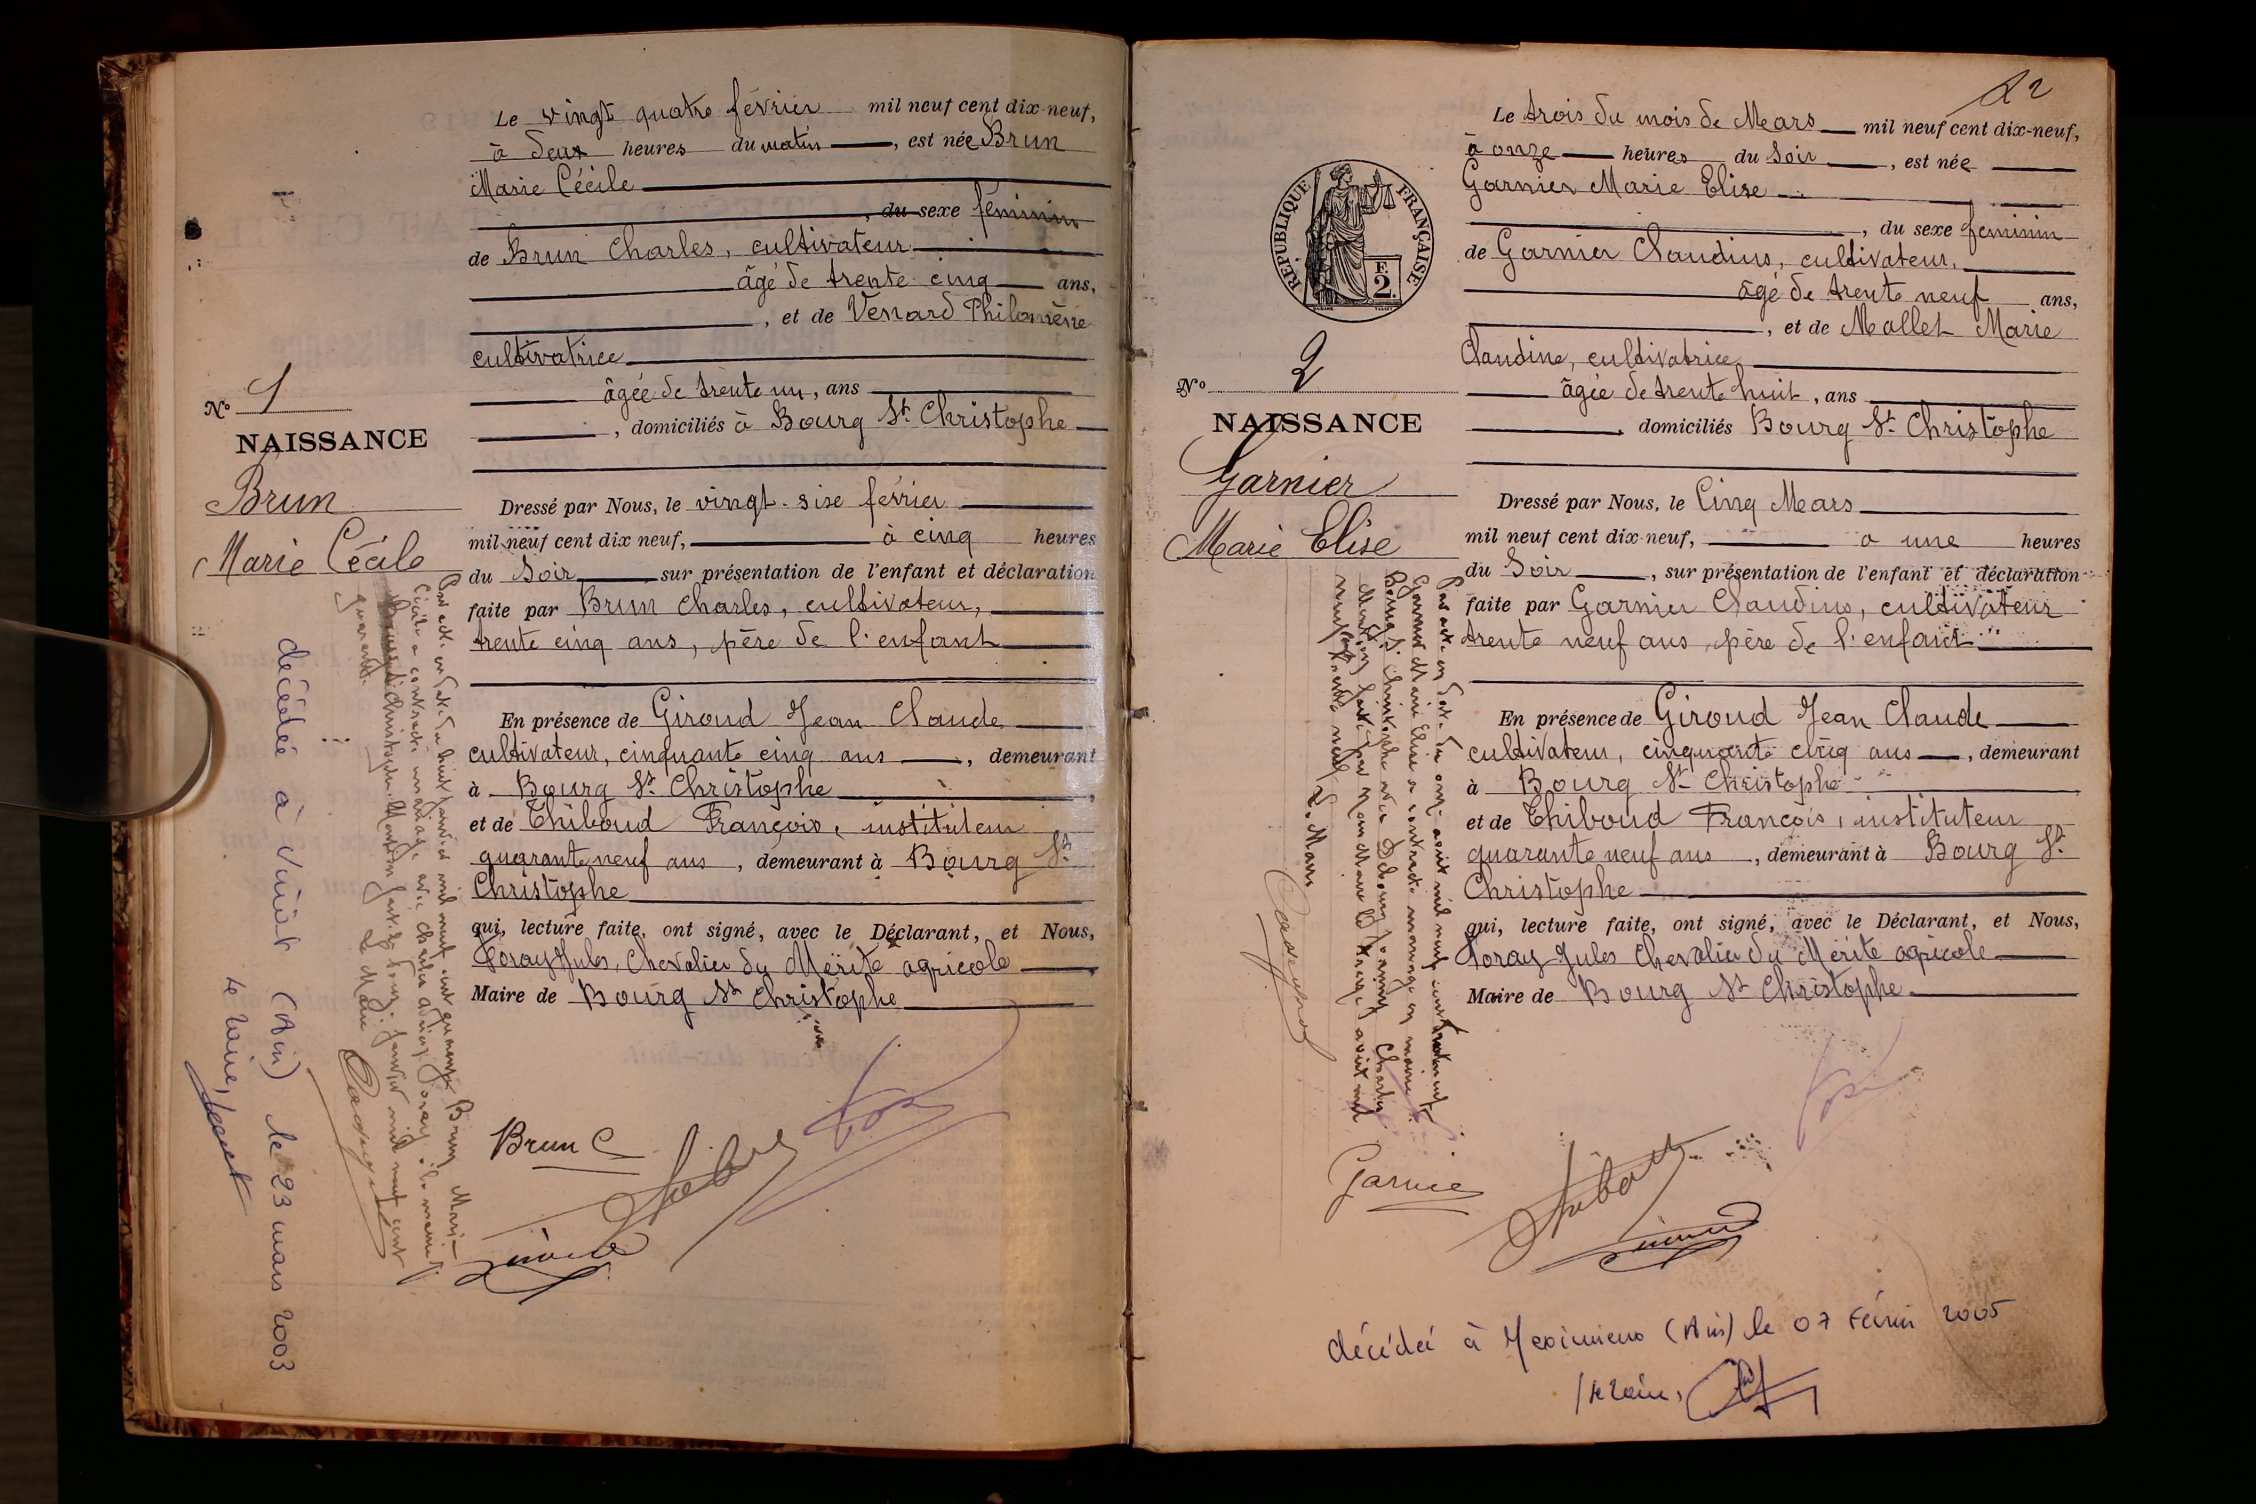 Le vingt quatre février mil neuf cent dix-neuf,
à deux heures du matin, est née Brun
Marie Cécile
, du sexe féminin
de Brun Charles, cultivateur
âgé de trente cinq ans,
, et de Venard Philomène
cultivatrice
âgée de trente un, ans
, domiciliés à Bourg St Christophe
Dressé par Nous, le vingt-sise février
mil neuf cent dix neuf, à cinq heures
du Soir sur présentation de l'enfant et déclaration
faite par Brun Charles, cultivateur,
trente cinq ans, père de l'enfant
En présence de Giroud Jean Claude
cultivateur, cinquante cinq ans, demeurant
à Bourg St Christophe,
et de Thiboud François, instituteur
quarante neuf ans, demeurant à Bourg St
Christophe
qui, lecture faite, ont signé, avec le Déclarant, et Nous,
Foray Jules, Chevalier du Mérite agricole,
Maire de Bourg St Christophe
Brun C
No 1
NAISSANCE
Brun
Marie Cécile
Cécile a contracté mariage avec Charles
Mention faite à Bourg
quarante.
Le Maire
décédée à (Ain) le 23 mars 2003
Le Maire,
22
Le trois du mois de Mars mil neuf cent dix-neuf,
à onze heures du Soir, est née
Garnier Marie Elise
, du sexe feminin
de Garnier Claudius, cultivateur,
âgé de trente neuf ans,
, et de Mallet Marie
Claudine, cultivatrice
âgée de trente huit, ans
, domiciliés Bourg St Christophe
Dressé par Nous, le Cinq Mars
mil neuf cent dix-neuf, a une heures
du Soir, sur présentation de l'enfant et déclaration
faite par Garnier Claudius, cultivateur
trente neuf ans, père de l'enfant
En présence de Giroud Jean Claude
cultivateur, cinquante cinq ans, demeurant
à Bourg St Christophe
et de Thiboud François, instituteur
quarante neuf ans, demeurant à Bourg St
Christophe
qui, lecture faite, ont signé, avec le Déclarant, et Nous,
Foray Jules Chevalier du Mérite agricole
Maire de Bourg St Christophe
Garnier
RÉPUBLIQUE FRANÇAISE
E
2
No 2
NAISSANCE
Garnier
Marie Elise
Par acte en date du onze août mil neuf cent trente neuf
Garnier Marie Elise a contracté mariage en mairie
Bourg St Christophe avec
Mention faite par
neuf cent trente neuf
Le Maire
décédée à Meximieux (Ain) le 07 Février 2005
Le Maire,